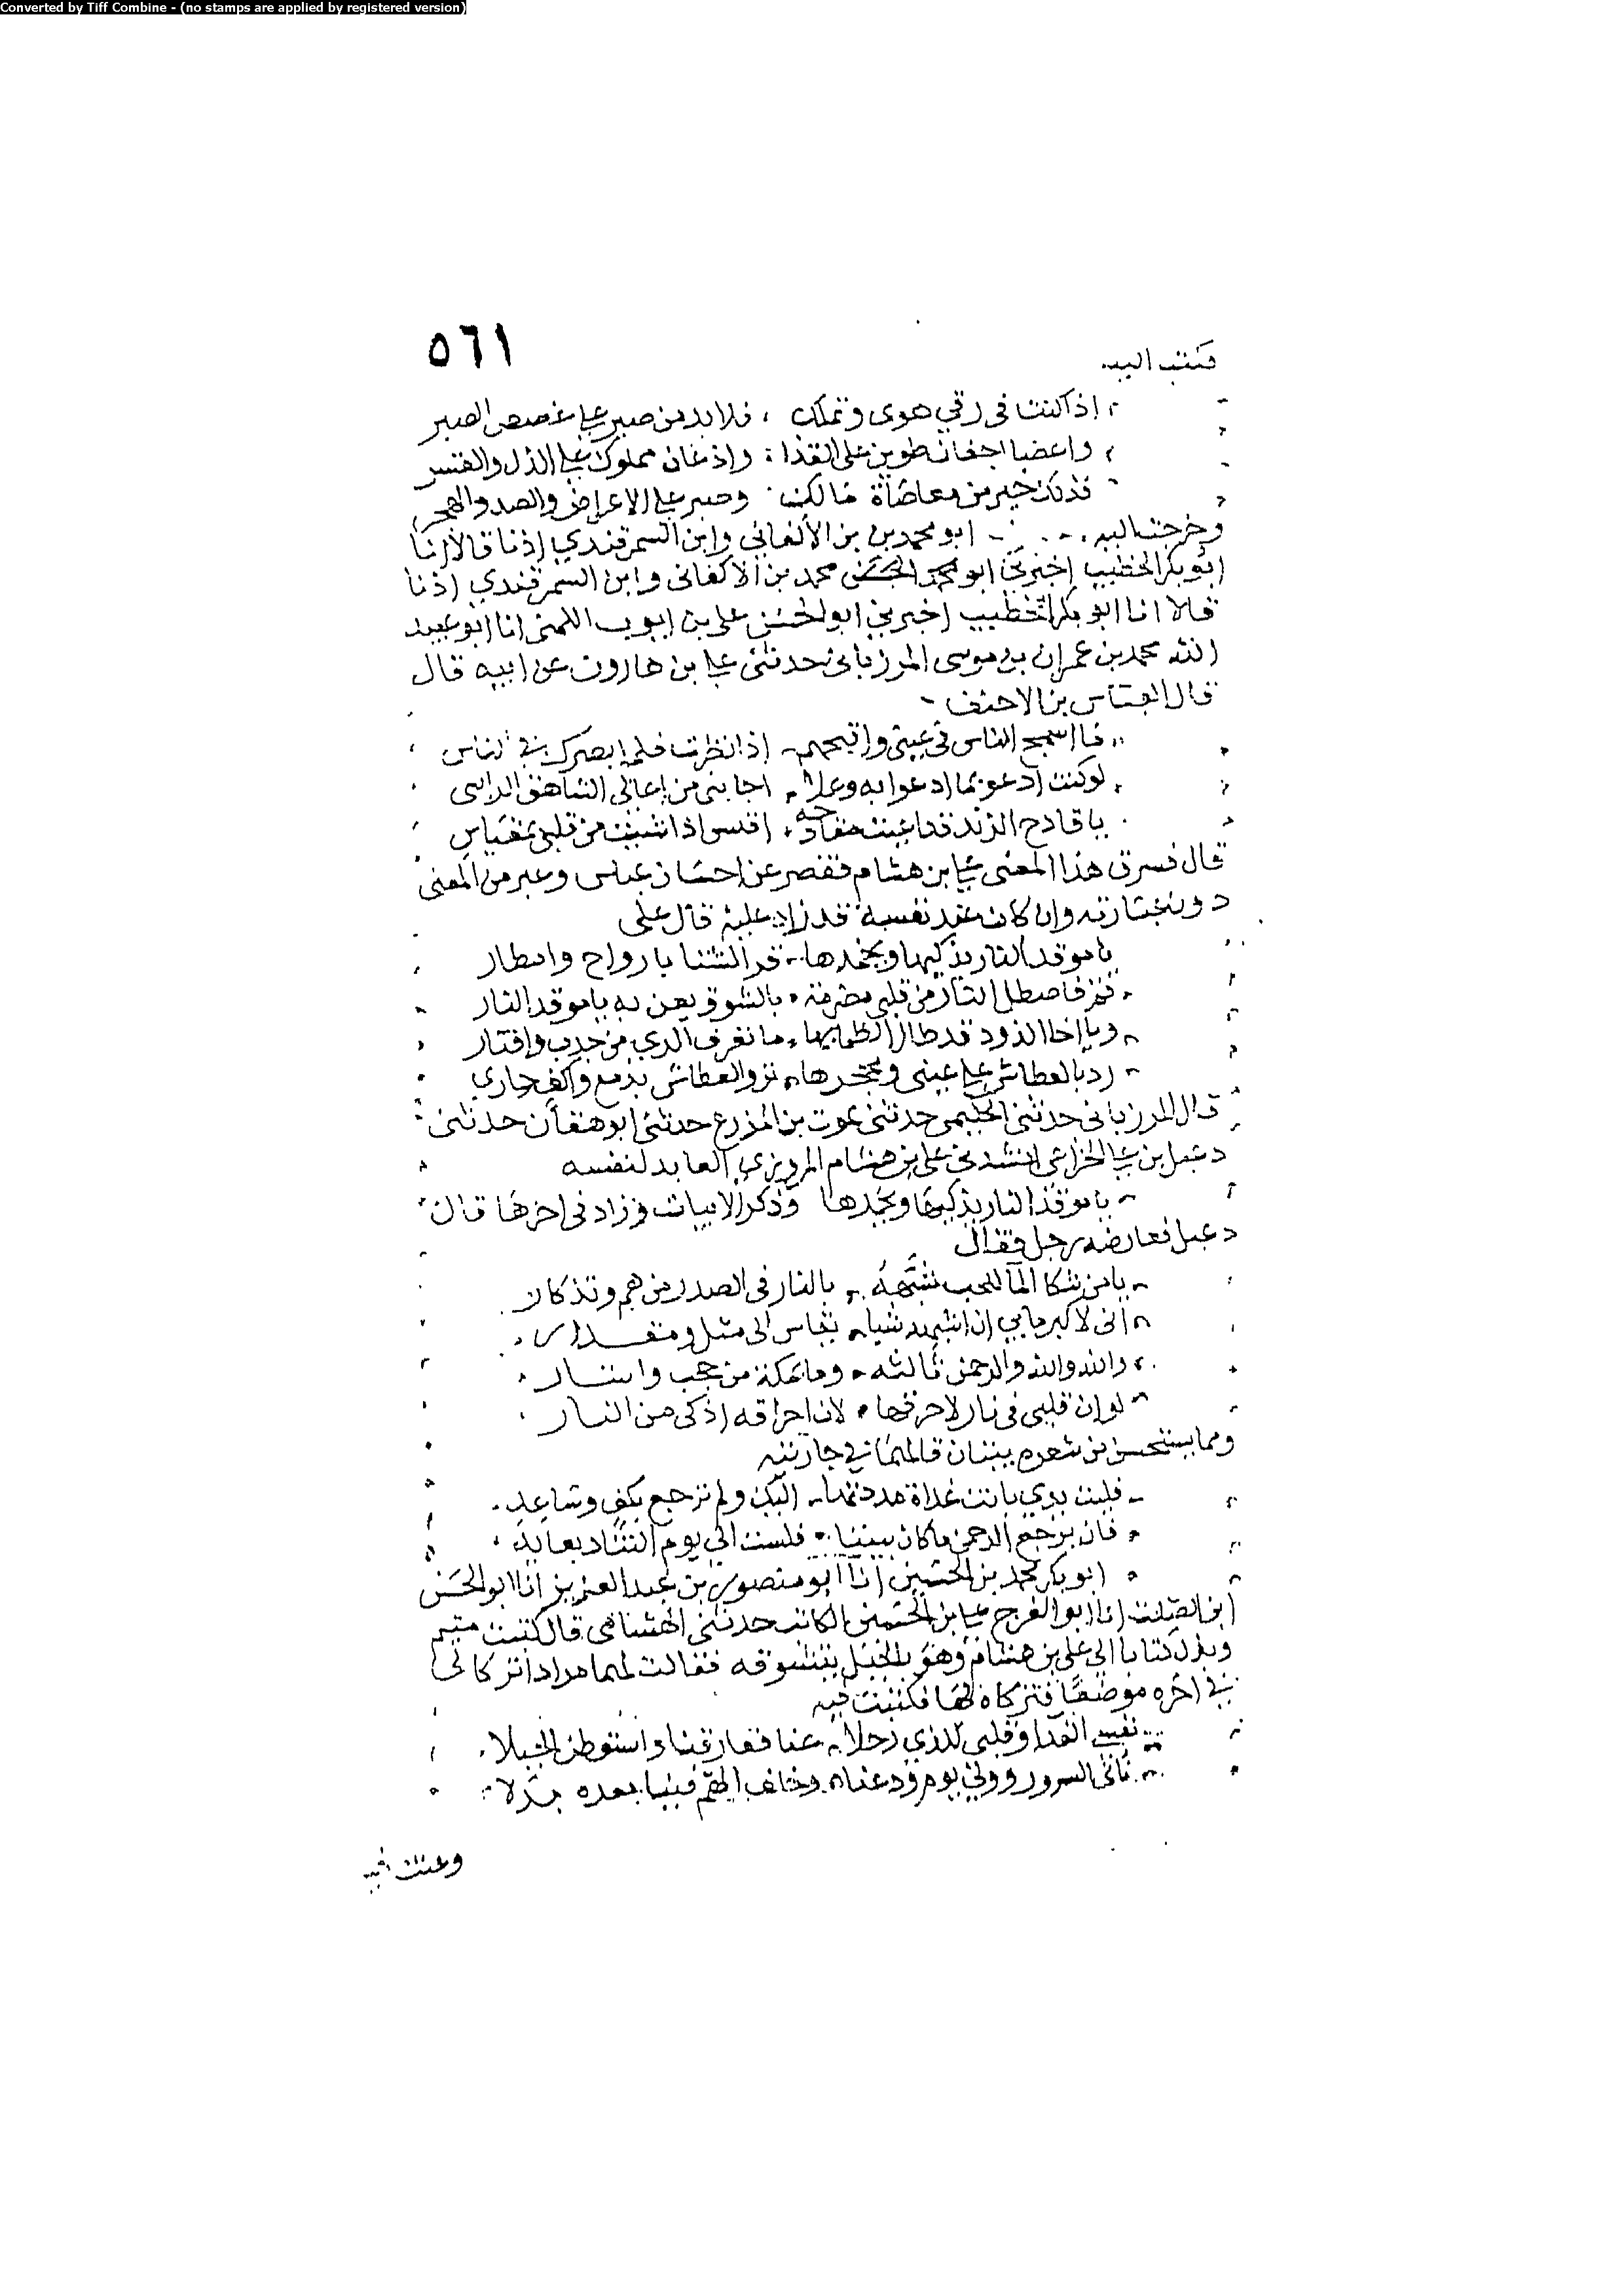 Converted by Tiff Combine - (no stamps are applied by registered version)
٥٦١
فكتب اليه
اذا كنت في رقي هوى وتملك فلا بد من صبر على غصص الصبر
واعضا اجفان طوين على القذا واذعان مملوك على الذل والقسر
فذلك خير من معاصاة مالك وصبر على الاعراض والصد والهجر
وخرجت اليه ابو محمد بن بن الألفاني وابن السمرقندي اذنا قالا انا
ابو بكر الخطيب اخبرني ابو محمد محمد بن الاكفاني وابن السمرقندي اذنا
قالا انا ابو بكر الخطيب اخبرني ابو الحسن علي بن ايوب القمي انا ابو عبيد
الله محمد بن عمران بن موسى المرزباني حدثني علي بن هارون عن ابيه قال
قال العباس بن الاحنف
ما اسمج الناس في عيني واقبحهم اذا نظرت فلم ابصرك في الناس
لو كنت ادعو بما ادعوا به وعلا اجابني من اعالي الشاهق الراسي
يا قادح الزند قد اعيت مقادحه اقبس اذا شئت من قلبي بمقياس
قال فسرق هذا المعنى علي بن هشام فقصر عن احسان عباس وعبر من المعنى
دون عبارته وان كان عند نفسه قد زاد عليه قال علي
يا موقد النار يذكيها ويخمدها قر الشتا بارواح وامطار
قم فاصطل النار من قلبي مضرمة بالشوق يعن به يا موقد النار
ويا اخا الذود قد طال الظما بها ما تعرف الري من جدب واقتار
رد بالعطاش على عيني ومحجرها ترو العطاش بدمع واكف جاري
قال المرزباني حدثني الحكيمي حدثني يموت بن المزرع حدثني ابو هفان حدثني
دعبل بن علي الخزاعي انشدني علي بن هشام المروزي العابد لنفسه
يا موقد النار يذكيها ويخمدها وذكر الابيات وزاد في اخرها قال
دعبل فعارضه رجل فقال
يا من شكا الما للحب شبهه بالنار في الصدر من هم وتذكار
اني لاكبر ما بي ان اشبهه شيا يقاس الى مثل ومقدار
والله والله والرحمن ثالثه وما بمكة من حجب واستار
لو ان قلبي في نار لاحرقها لان احراقه اذكى من النار
ومما يستحسن من شعره بيتان قالهما في جاريته
فليت يدي بانت غداة مددتها اليك ولم ترجع بكف وساعد
فان يرجع الرحمن ما كان بيننا فلست الى يوم التناد بعايد
ابو بكر محمد بن الحسين انا ابو منصور بن عبد العزيز انا ابو الحسن
ابن الصلت انا ابو الفرج علي بن الحسين الكاتب حدثني الهشامي قال كتبت متيم
وبذل كتابا الى علي بن هشام وهو بالجبل يتشوقه فقالت لهما مراد اتركا لي
في اخره موضعا فتركاه لها فكتبت فيه
نفسي الفدا وقلبي للذي رحلا عنا ففارقنا واستوطن الجبلا
ناى السرور وولى يوم ودعناه وخلف الهم فينا بعده بدلا
وعنت فيه